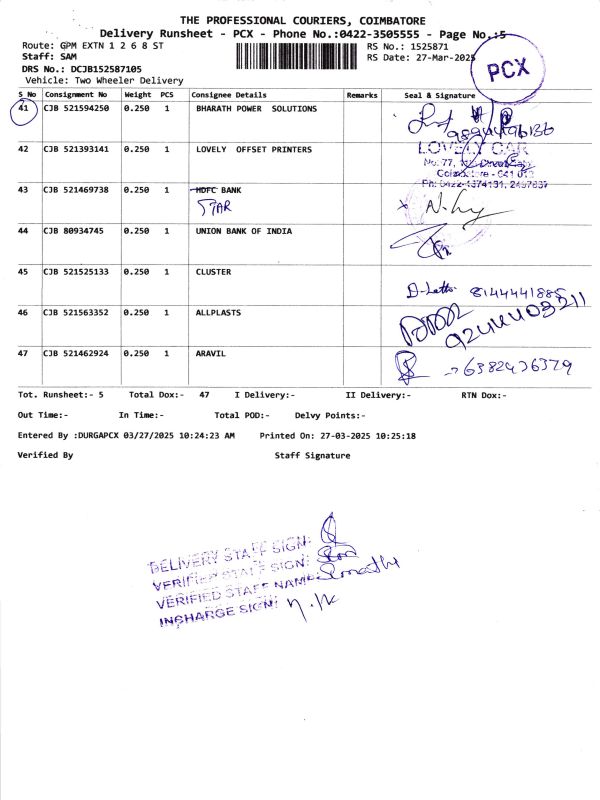 THE PROFESSIONAL COURIERS, COIMBATORE
Delivery Runsheet - PCX - Phone No.:0422-3505555 - Page No.:5
Route: GPM EXTN 1 2 6 8 ST RS No.: 1525871
Staff: SAM RS Date: 27-Mar-2025
DRS No.: DCJB152587105
Vehicle: Two Wheeler Delivery
PCX
S_No Consignment No Weight PCS Consignee Details Remarks Seal & Signature
41 CJB 521594250 0.250 1 BHARATH POWER SOLUTIONS
42 CJB 521393141 0.250 1 LOVELY OFFSET PRINTERS
LOVELY CAR
No: 77,
Coimbatore - 641 012
43 CJB 521469738 0.250 1 HDFC BANK
STAR
44 CJB 80934745 0.250 1 UNION BANK OF INDIA
45 CJB 521525133 0.250 1 CLUSTER
46 CJB 521563352 0.250 1 ALLPLASTS
9244403211
47 CJB 521462924 0.250 1 ARAVIL
Tot. Runsheet:- 5 Total Dox:- 47 I Delivery:- II Delivery:- RTN Dox:-
Out Time:- In Time:- Total POD:- Delvy Points:-
Entered By :DURGAPCX 03/27/2025 10:24:23 AM Printed On: 27-03-2025 10:25:18
Verified By Staff Signature
DELIVERY STAFF SIGN:
VERIFIED STAFF SIGN:
VERIFIED STAFF NAME:
INCHARGE SIGN: